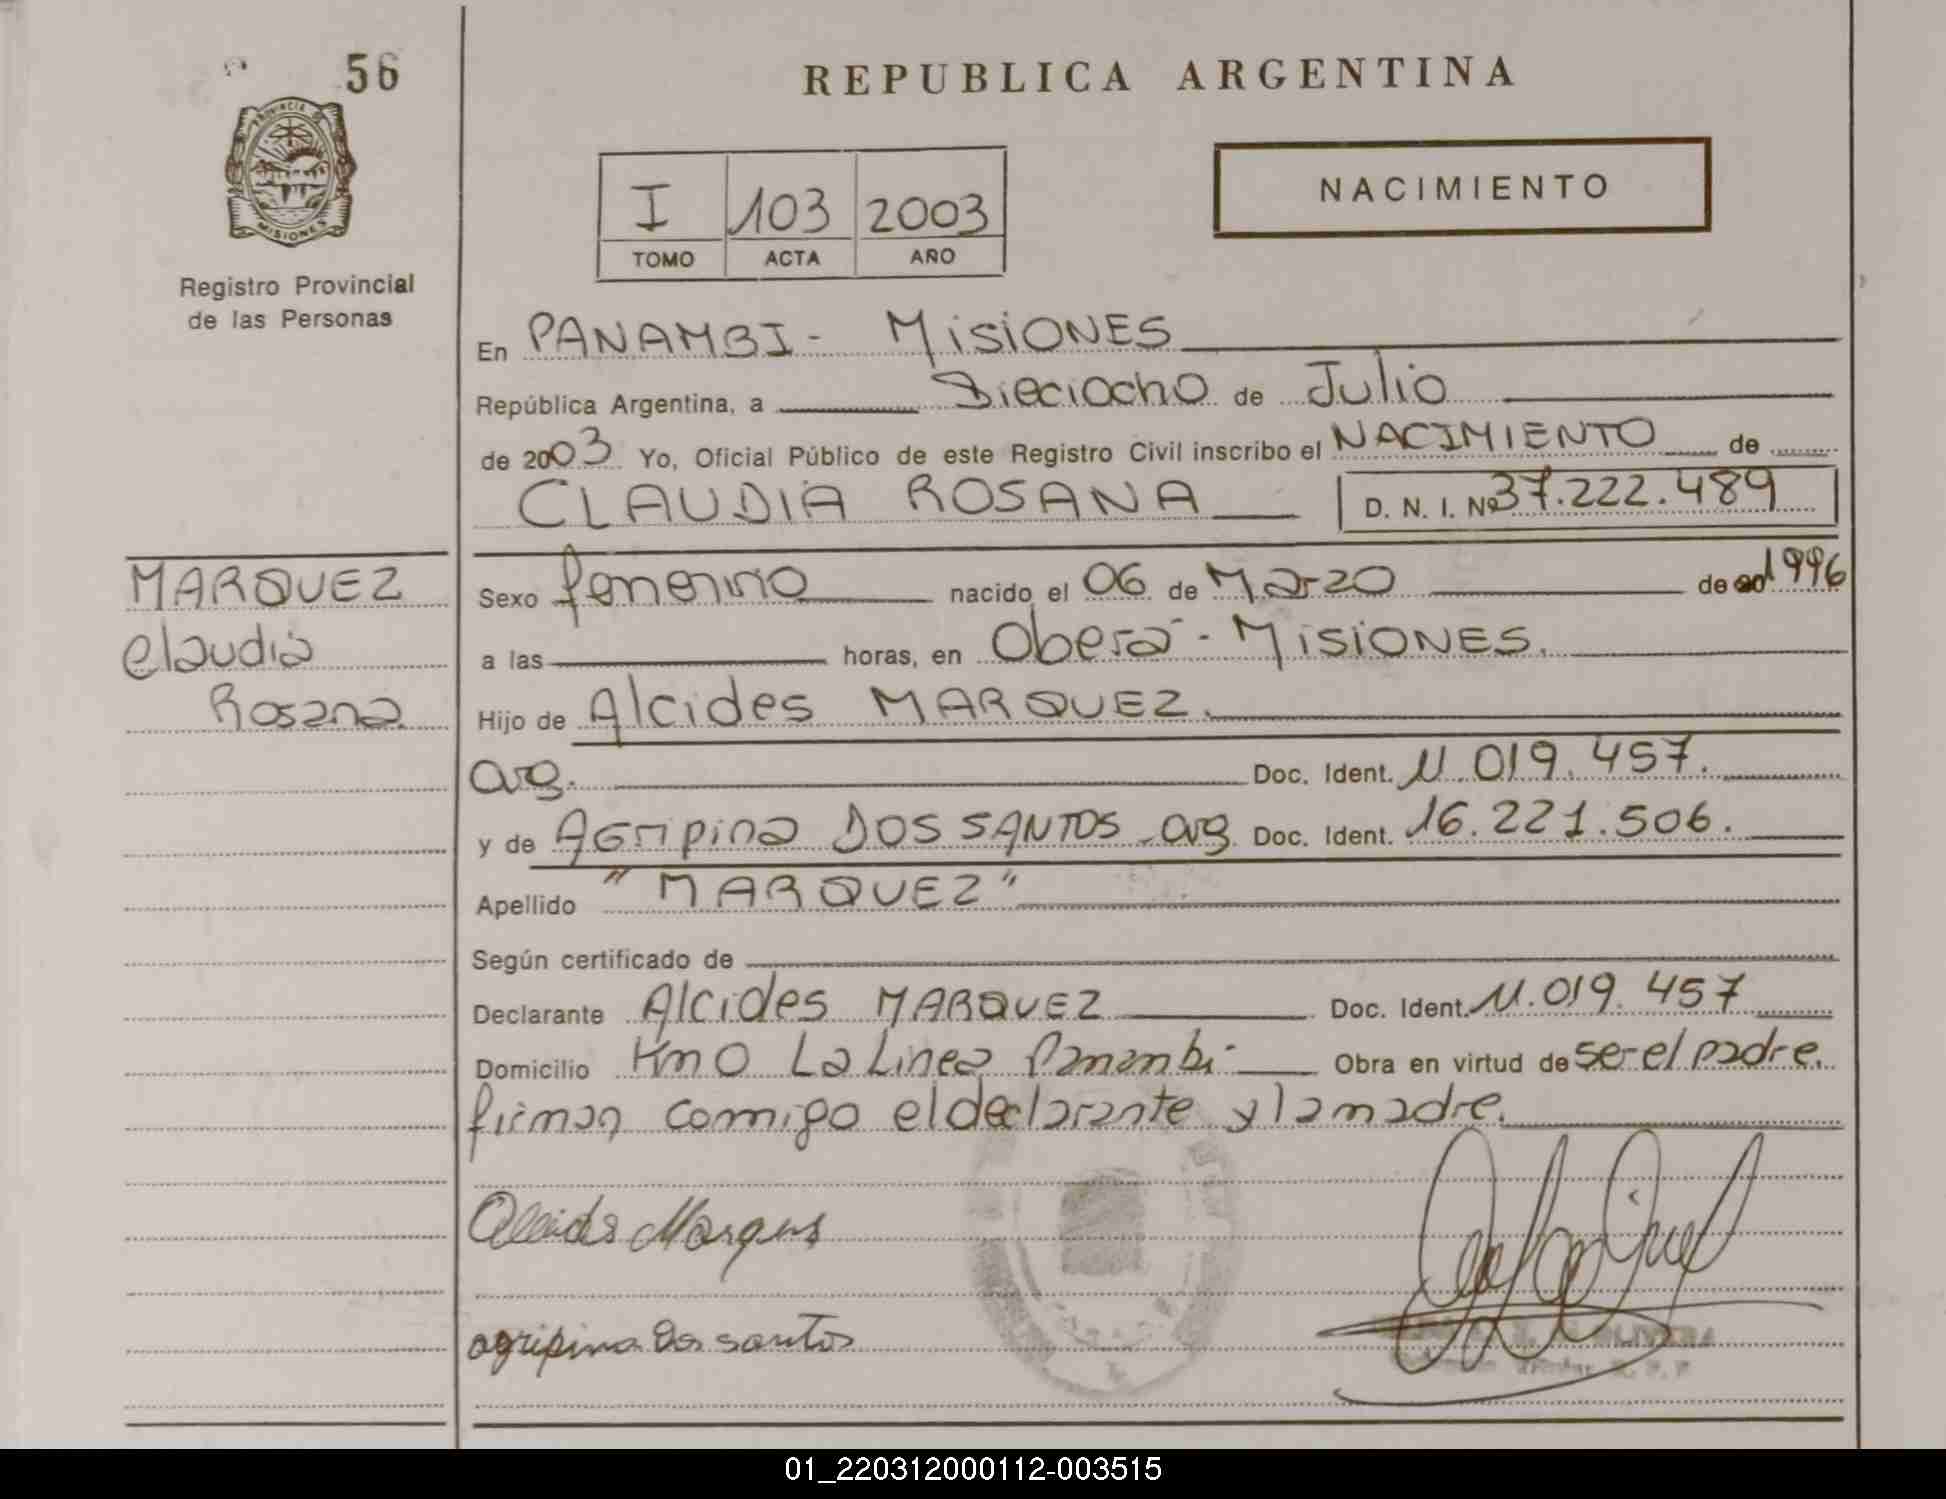 56
REPUBLICA ARGENTINA
PROVINCIA DE
MISIONES
Registro Provincial
de las Personas
I 103 2003
TOMO ACTA AÑO
NACIMIENTO
En PANAMBI - MISIONES
República Argentina, a Dieciocho de Julio
de 2003 Yo, Oficial Público de este Registro Civil inscribo el NACIMIENTO de
CLAUDIA ROSANA D. N. I. Nº 37.222.489
MARQUEZ
Claudia
Rosana
Sexo femenino nacido el 06 de Marzo de 1996
a las horas, en Oberá - MISIONES.
Hijo de Alcides MARQUEZ.
arg. Doc. Ident. 11.019.457.
y de Agripina DOS SANTOS - arg. Doc. Ident. 16.221.506.
Apellido "MARQUEZ"
Según certificado de
Declarante Alcides MARQUEZ Doc. Ident. 11.019.457
Domicilio Km 0 La Linea Panambi Obra en virtud de ser el padre.
firman comigo el declarante y la madre.
Alcides Marques
agripina Dos santos
01_220312000112-003515